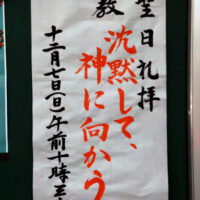 聖日礼拝
教
沈黙して、
神に向かう
十二月七日(日)午前十時三